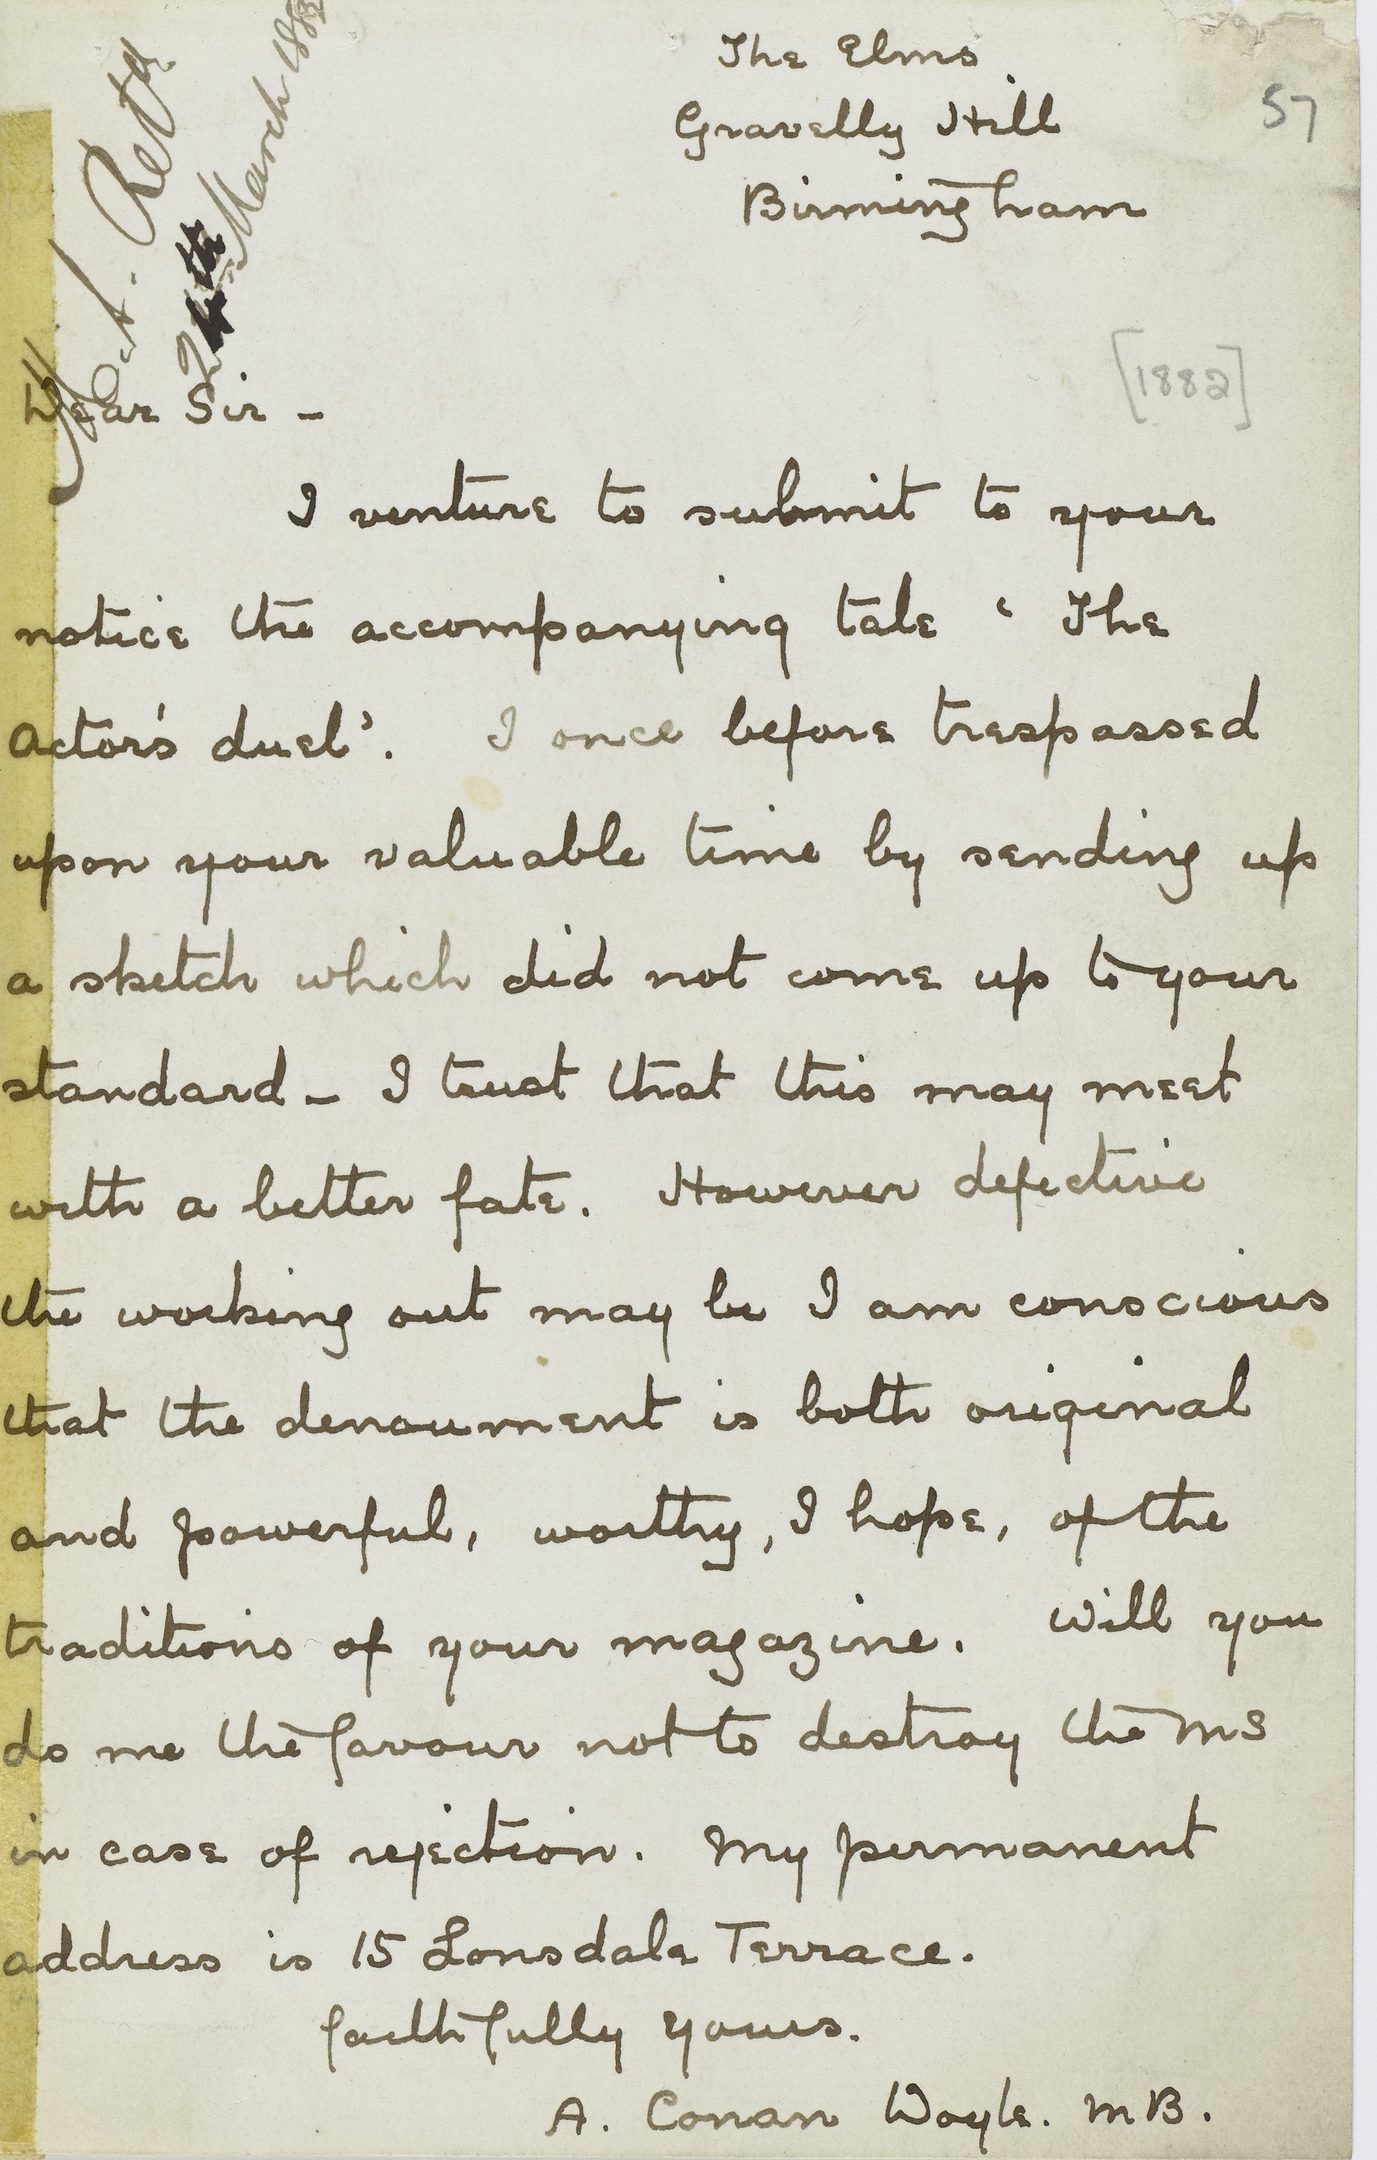 The Elms
Gravelly Hill
Birmingham
57
24th March 1882
[1882]
Dear Sir -
I venture to submit to your
notice the accompanying tale ‘ The
Actor's duel’. I once before trespassed
upon your valuable time by sending up
a sketch which did not come up to your
standard - I trust that this may meet
with a better fate. However defective
the working out may be I am conscious
that the denoument is both original
and powerful, worthy, I hope, of the
traditions of your magazine. Will you
do me the favour not to destroy the MS
in case of rejection. My permanent
address is 15 Lonsdale Terrace.
faithfully yours.
A. Conan Doyle. MB.